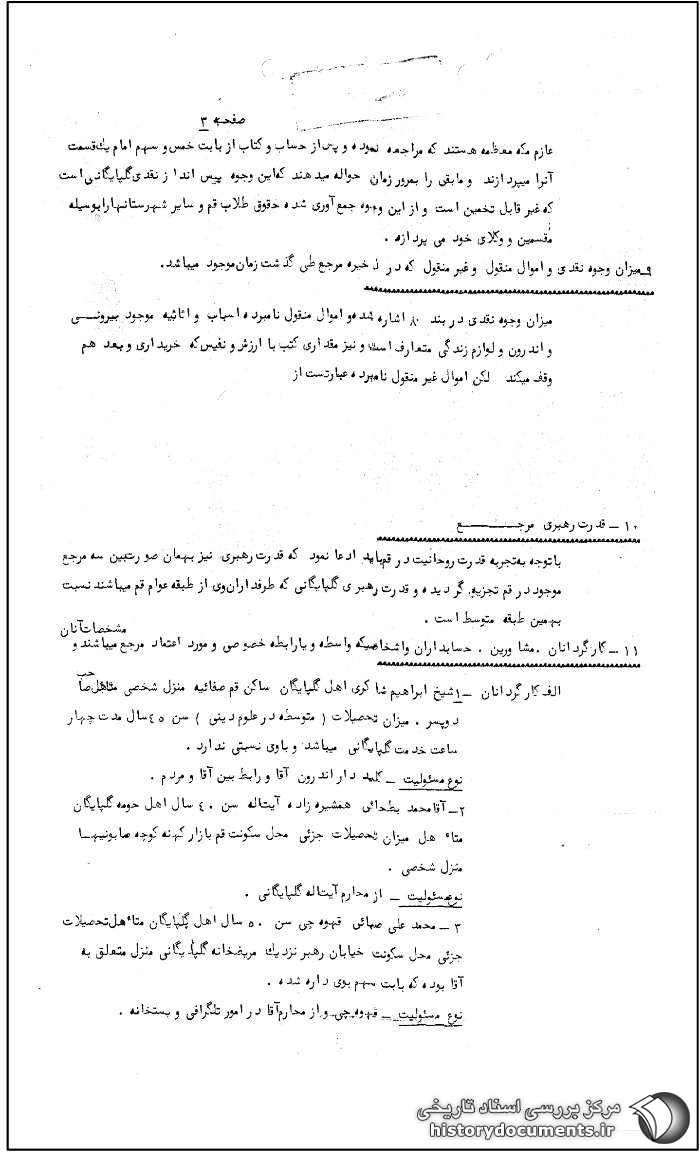 صفحه ۳
عازم مکه معظمه هستند که مراجعه نموده و پس از حساب و کتاب از بابت خمس و سهم امام یک قسمت
آنرا میپردازند و مابقی را بمرور زمان حواله میدهند که این وجوه پس انداز نقدی گلپایگانی است
که غیر قابل تخمین است و از این وجوه جمع آوری شده حقوق طلاب قم و سایر شهرستانها را بوسیله
مقسمین و وکلای خود می پردازد .
۹ـ میزان وجوه نقدی و اموال منقول و غیر منقول که در ذخیره مرجع طی گذشت زمان موجود میباشد.
میزان وجوه نقدی در بند ۸ اشاره شده و اموال منقول نامبرده اسباب و اثاثیه موجود بیرونـــی
و اندرون و لوازم زندگی متعارف است و نیز مقداری کتب با ارزش و نفیس که خریداری و بعد هم
وقف میکند لکن اموال غیر منقول نامبرده عبارتست از
۱۰ ـ قدرت رهبری مرجـــــــع
با توجه به تجربه قدرت روحانیت در قم باید ادعا نمود که قدرت رهبری نیز بهمان صورت بین سه مرجع
موجود در قم تجزیه گردیده و قدرت رهبری گلپایگانی که طرفداران وی از طبقه عوام قم میباشند نسبت
بهمین طبقه متوسط است .
مشخصات آنان
۱۱ ـ کارگردانان . مشاورین . حسابداران و اشخاصیکه واسطه و یا رابطه خصوصی و مورد اعتماد مرجع میباشند و
الف کارگردانان ـ ۱ شیخ ابراهیم شاکری اهل گلپایگان ساکن قم صفائیه منزل شخصی متاهل صاحب
دو پسر . میزان تحصیلات ( متوسطه در علوم دینی ) سن ٤٥ سال مدت چهار
ساعت خدمت گلپایگانی میباشد و با وی نسبتی ندارد .
نوع مسئولیت ـ کلید دار اندرون آقا و رابط بین آقا و مردم .
۲ـ آقا محمد بطحائی همشیره زاده آیتاله سن ٤۰ سال اهل حومه گلپایگان
متاٴهل میزان تحصیلات جزئی محل سکونت قم بازار کهنه کوچه صابونیهـا
منزل شخصی .
نوع مسئولیت ـ از محارم آیتاله گلپایگانی .
۳ ـ محمد علی صهائی قهوه چی سن ۵۰ سال اهل گلپایگان متاٴهل تحصیلات
جزئی محل سکونت خیابان رهبر نزدیک مریضخانه گلپایگانی منزل متعلق به
آقا بوده که بابت سهم بوی داده شده .
نوع مسئولیت ـ قهوه چی و از محارم آقا در امور تلگرافی و پستخانه .
مرکز بررسی اسناد تاریخی
historydocuments.ir